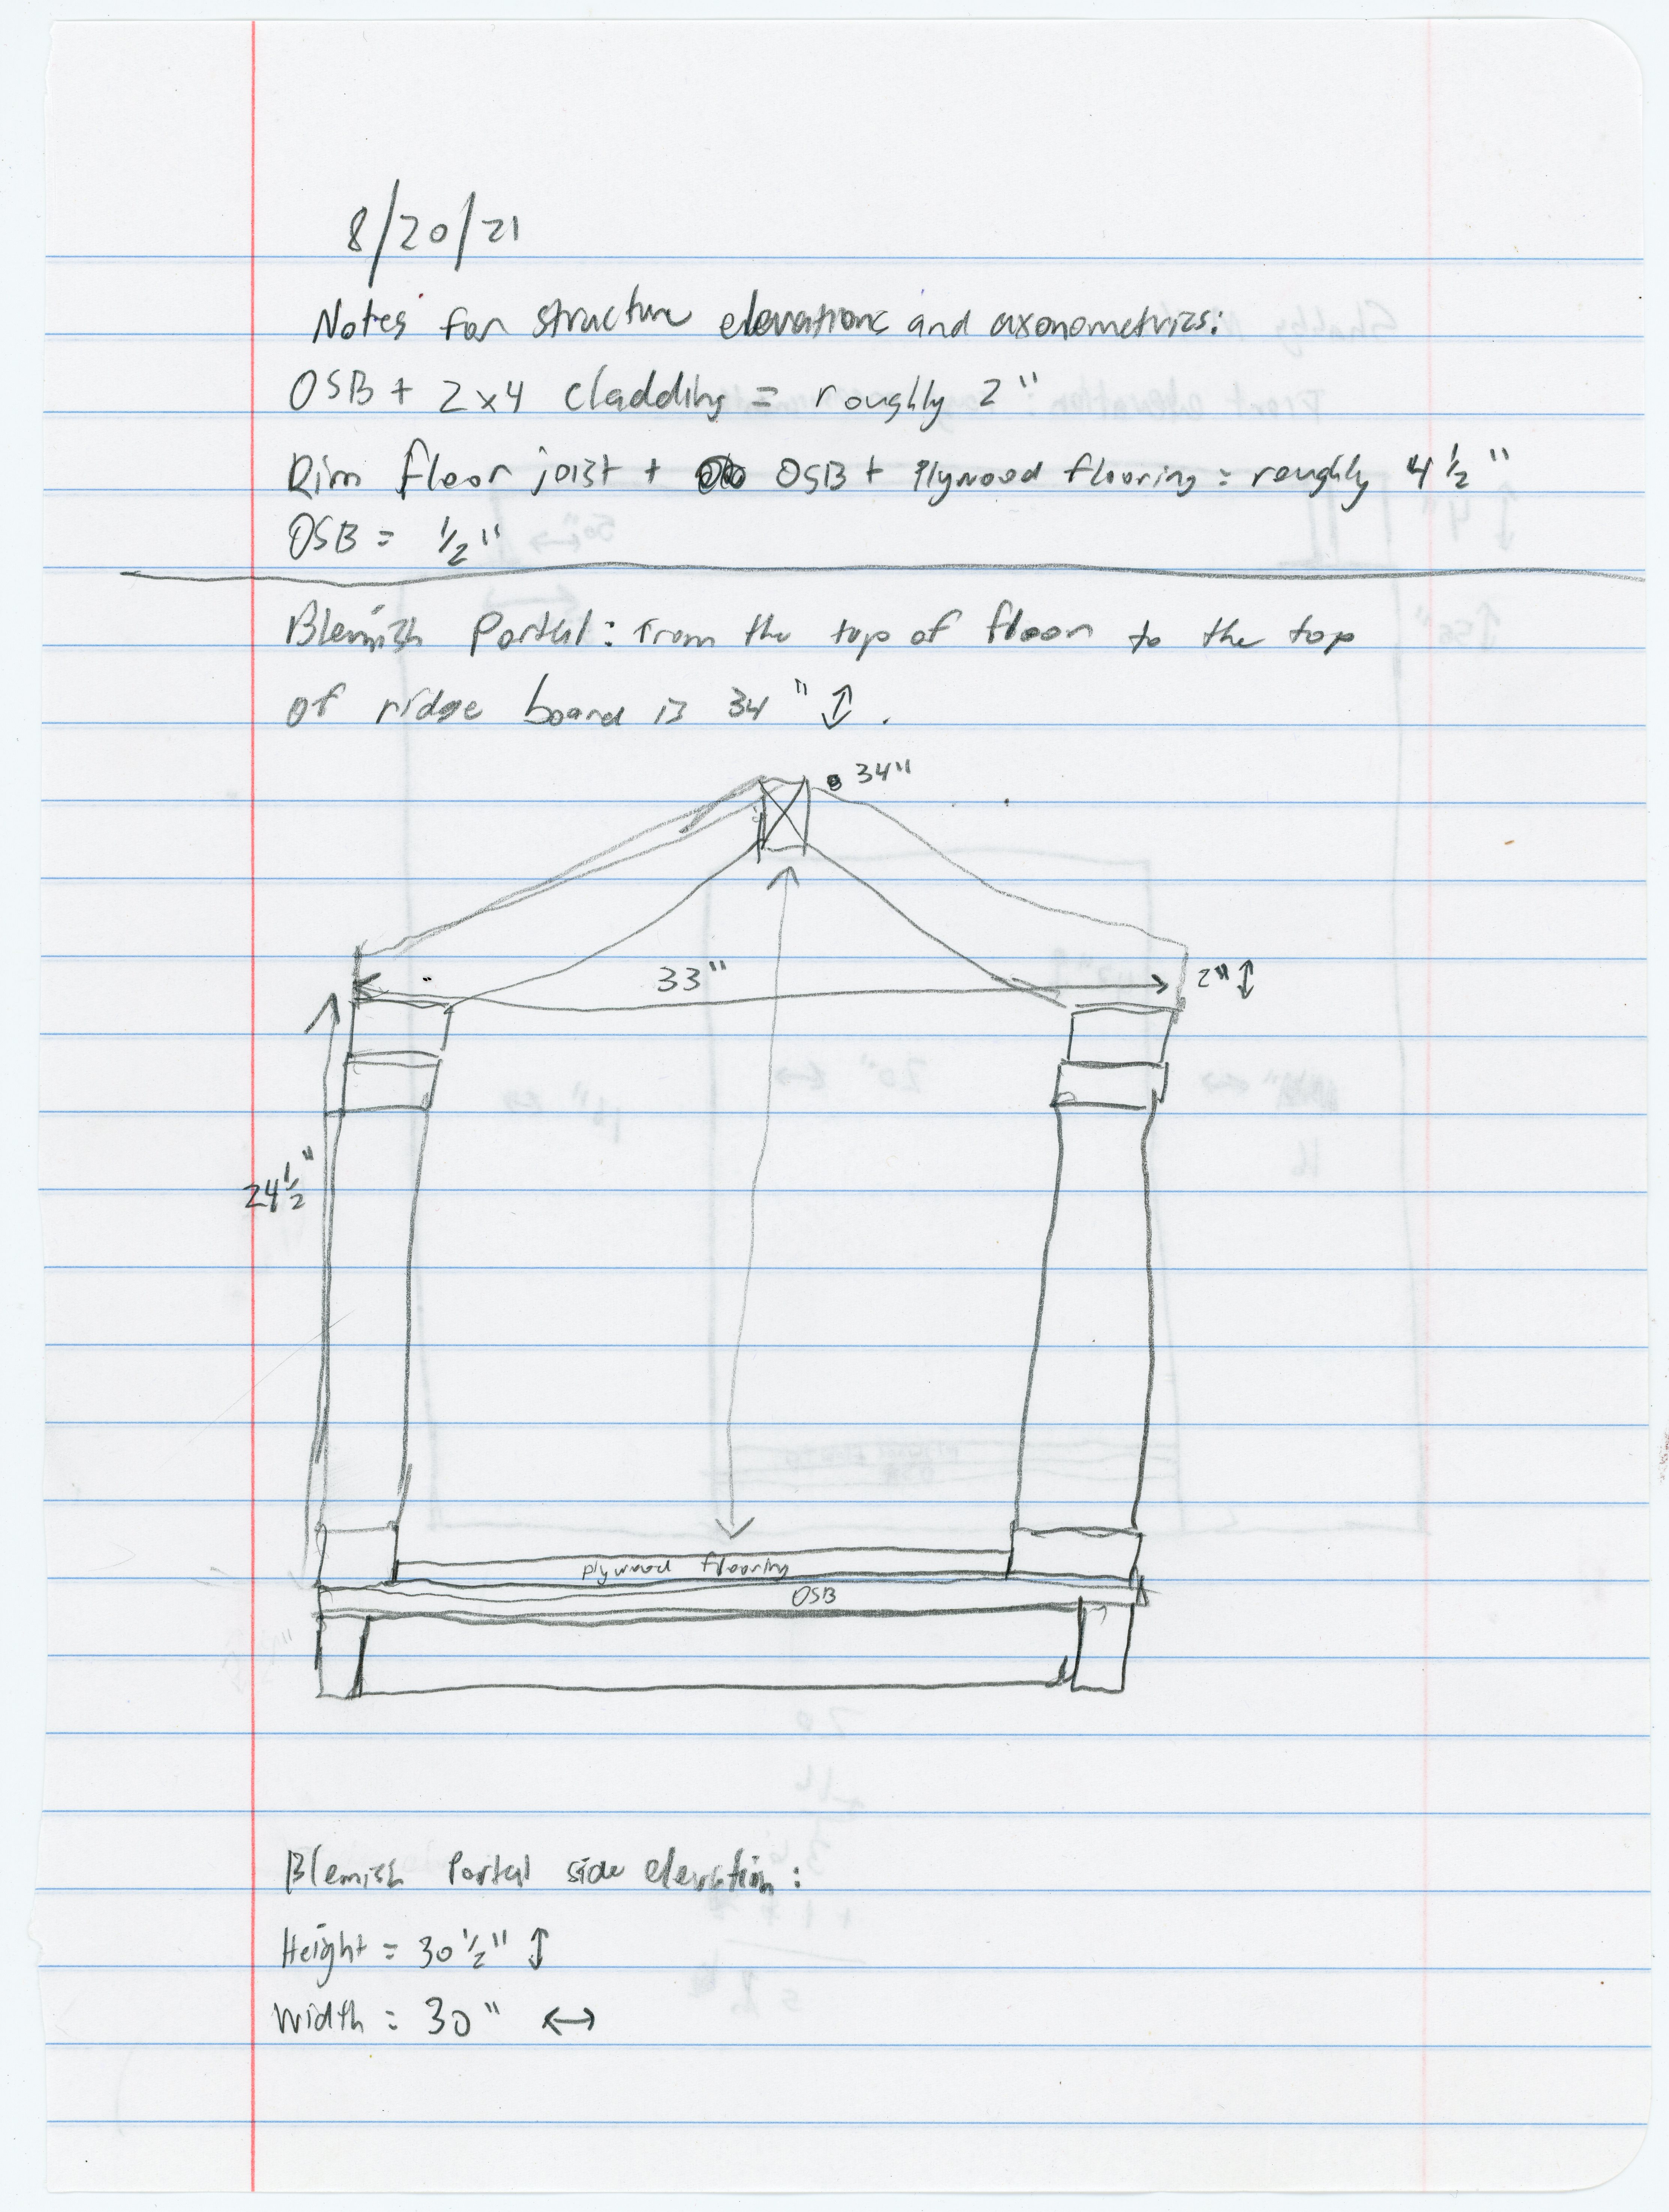 8/20/21
Notes for structure elevations and axonometrics:
OSB + 2x4 cladding = roughly 2"
Rim floor joist + OSB + Plywood flooring = roughly 4 1/2"
OSB = 1/2"
Blemish Portal: From the top of floor to the top
of ridge board is 34" ↕.
34"
33"
2" ↕
24 1/2"
plywood flooring
OSB
Blemish Portal side elevation:
Height = 30 1/2" ↕
Width = 30" ↔